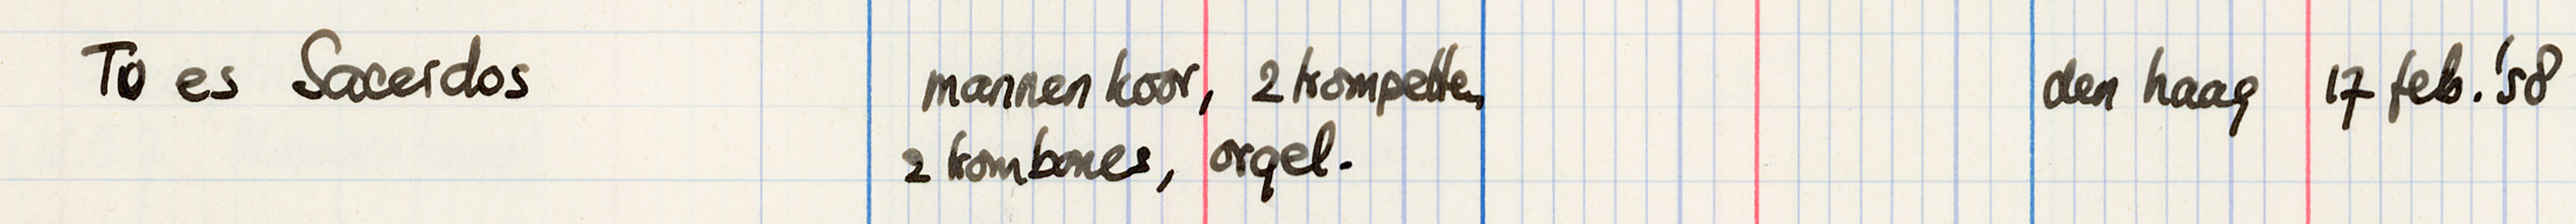 Tu es Sacerdos mannenkoor, 2 trompetten, den haag 17 feb. '58
2 trombones, orgel.